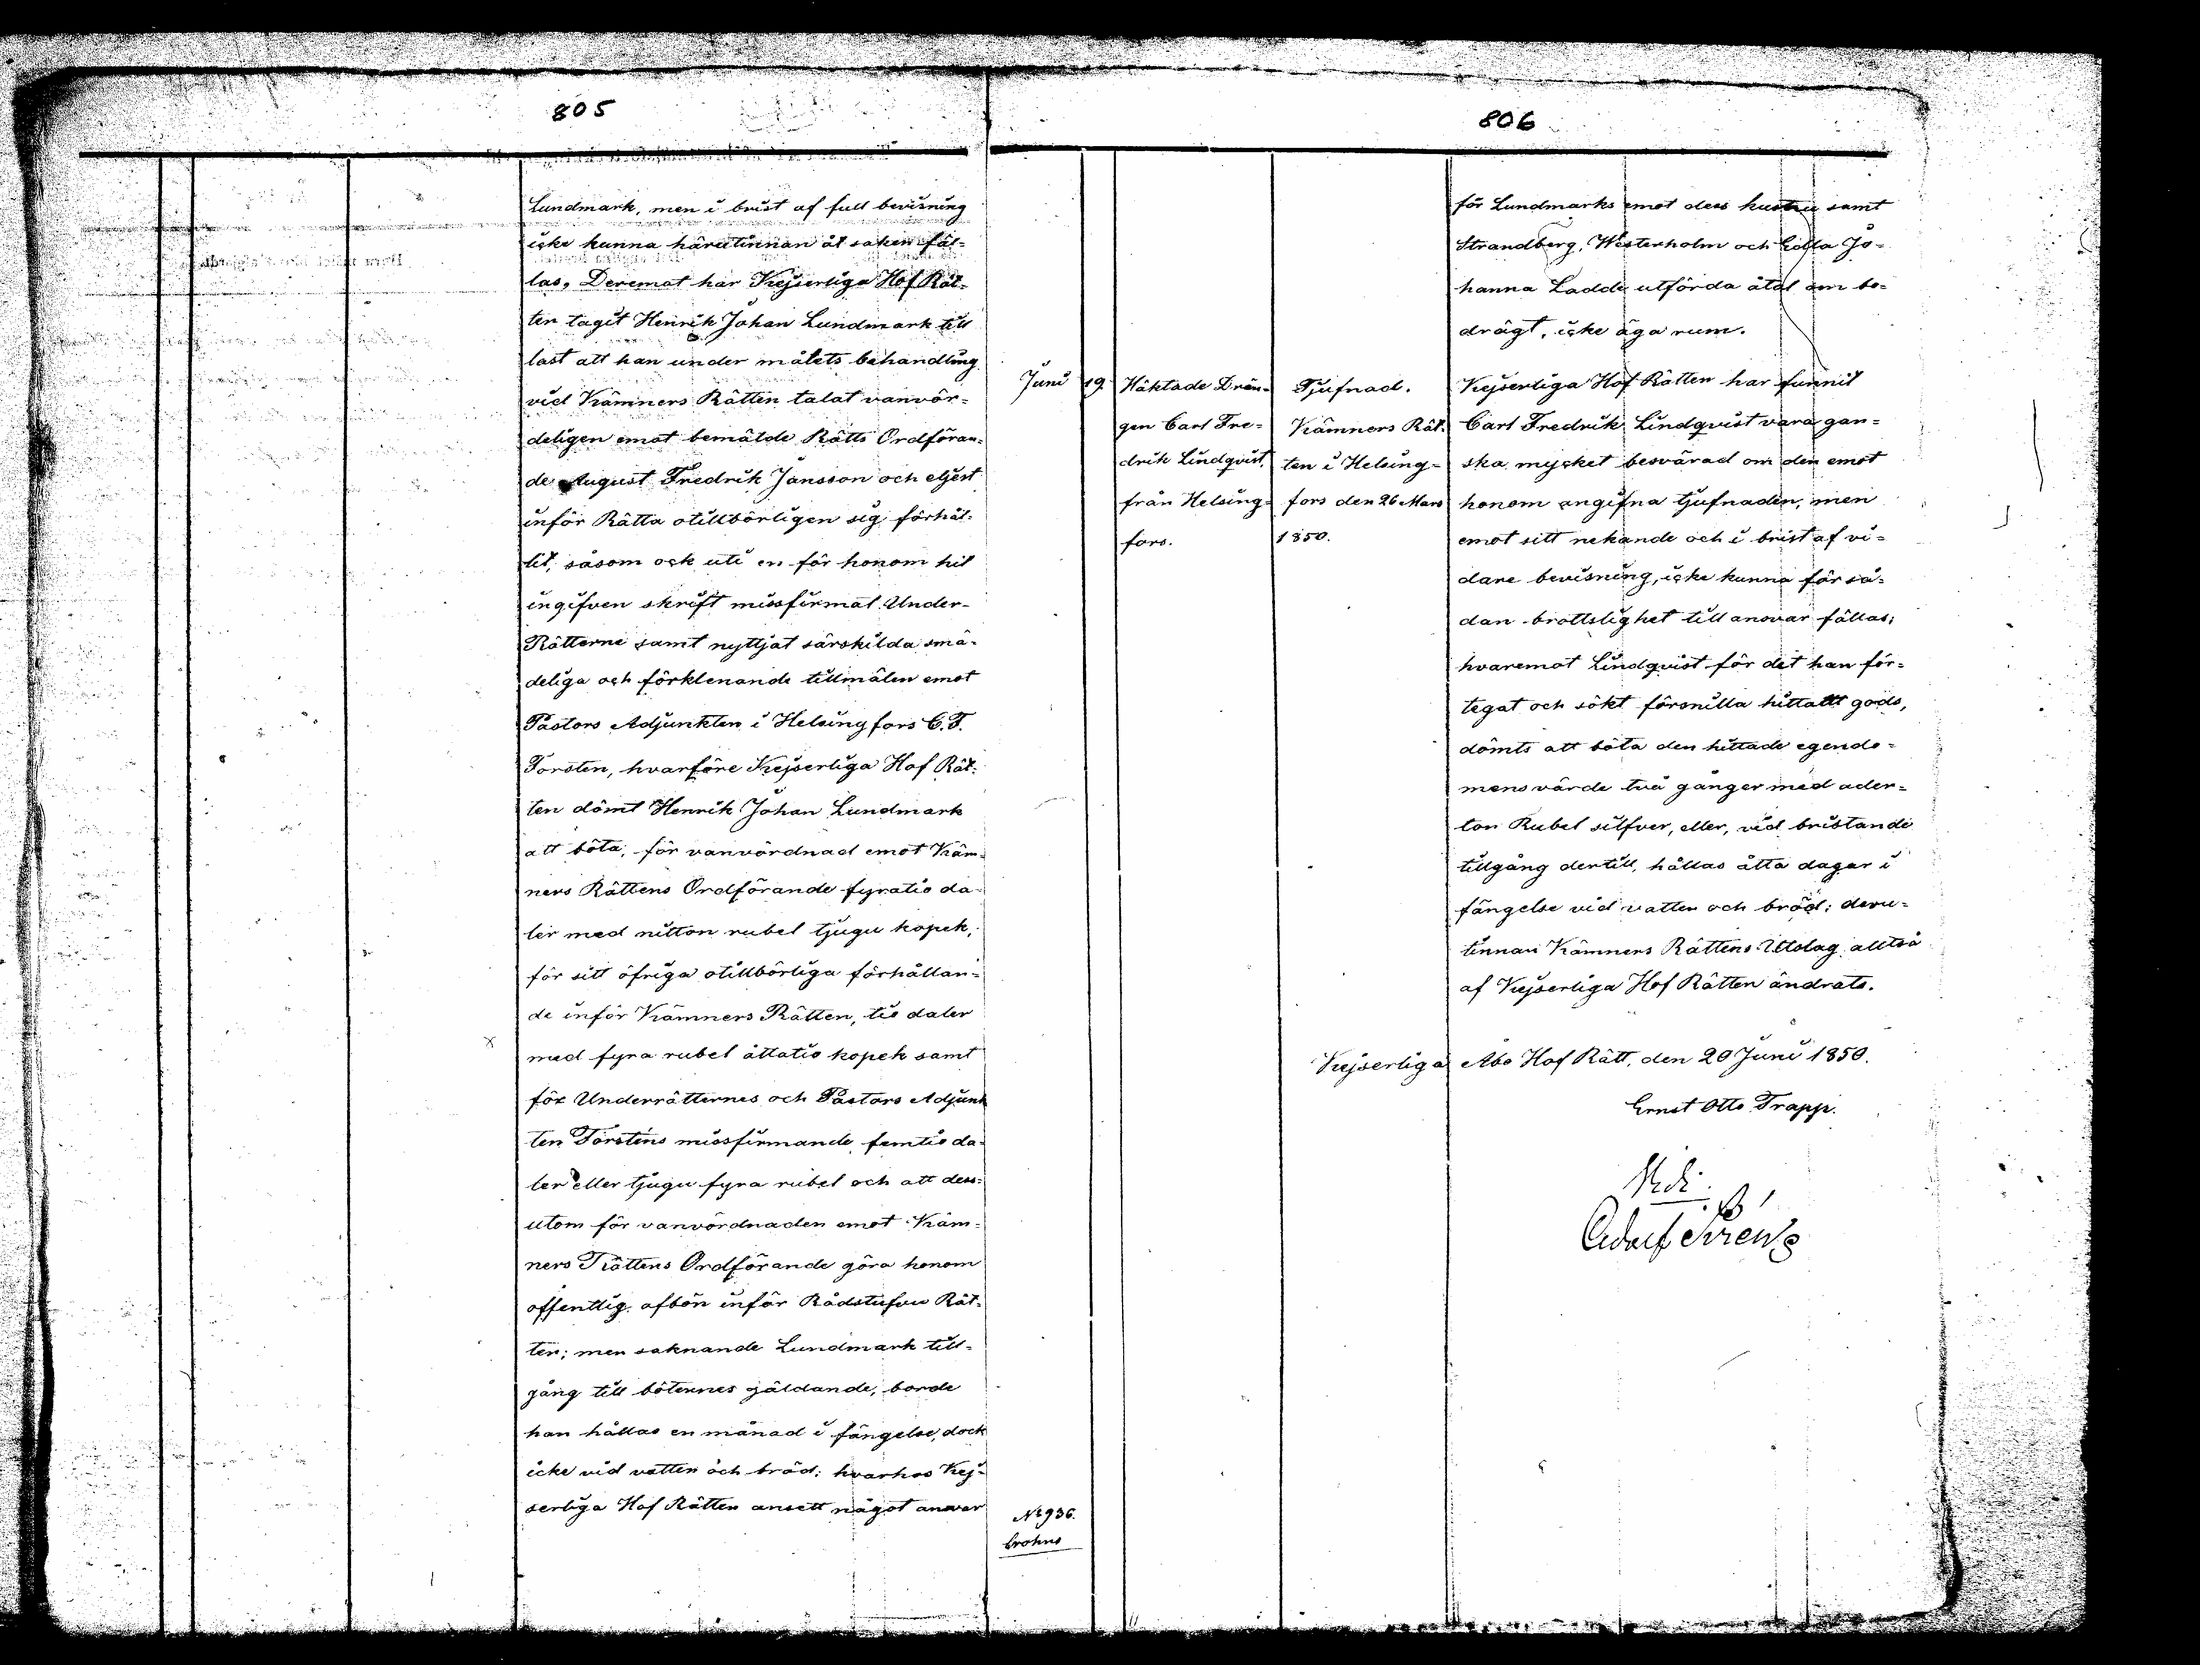 805
Lundmark, men i brist af full bevisning
icke kunna härutinnan åt saken fäl-
las, Deremot har Kejserliga Hof Rät-
ten tagit Henrik Johan Lundmark till
last att han under målets behandling
vid Kämners Rätten talat vanvör-
deligen emot bemälde Rätts Ordföran-
de August Fredrik Jansson och eljest
inför Rätta otillbörligen sig förhål-
lit, såsom ock uti en för honom hit
ingifven skrift missfirmat Under-
Rätterne samt nyttjat särskilda smä-
deliga och förklenande tillmälen emot
Pastors Adjunkten i Helsingfors C. F.
Forsten, hvarföre Kejserliga Hof Rät-
ten dömt Henrik Johan Lundmark
att böta, för vanvördnad emot Käm-
ners Rättens Ordförande fyratio da-
ler med nitton rubel tjugu kopek,
för sitt öfriga otillbörliga förhållan-
de inför Kämners Rätten, tio daler
med fyra rubel åttatio kopek samt
för Underrätternes och Pastors Adjunk
ten Forstens missfirmande, femtio da-
ler eller tjugu fyra rubel och att dess-
utom för vanvördnaden emot Käm-
ners Rättens Ordförande göra honom
offentlig afbön inför Rådstufvu Rät-
ten; men saknande Lundmark till-
gång till böternes gäldande, borde
han hållas en månad i fängelse, dock
icke vid vatten och bröd; hvarhos Kej-
serliga Hof Rätten ansett något ansvar
806
för Lundmarks emot dess hustru samt
Strandberg, Westerholm och Jo-
hanna Ladde utförda åtal om be-
drägt, icke äga rum.
Juni 19. Häktade Drän- Tjufnad. Kejserliga Hof Rätten har funnit
gen Carl Fre- Kämners Rät- Carl Fredrik Lindqvist vara gan-
drik Lindqvist, ten i Helsing- ska mycket besvärad om den emot
från Helsing- fors den 26 Mars honom angifna tjufnaden, men
fors. 1850. emot sitt nekande och i brist af vi-
dare bevisning, icke kunna för så-
dan brottslighet till ansvar fällas;
hvaremot Lindqvist för det han för-
tegat och sökt försnilla hittatt gods,
dömts att böta den hittade egendo-
mens värde två gånger med ader-
ton Rubel silfver, eller, vid bristande
tillgång dertill, hållas åtta dagar i
fängelse vid vatten och bröd; deru-
tinnan Kämners Rättens Utslag alltså
af Kejserliga Hof Rätten ändrats.
Kejserliga Abo Hof Rätt, den 20 Juni 1850.
Ernst Otto Trapp.
Vidi:
№ 936.
Brohns